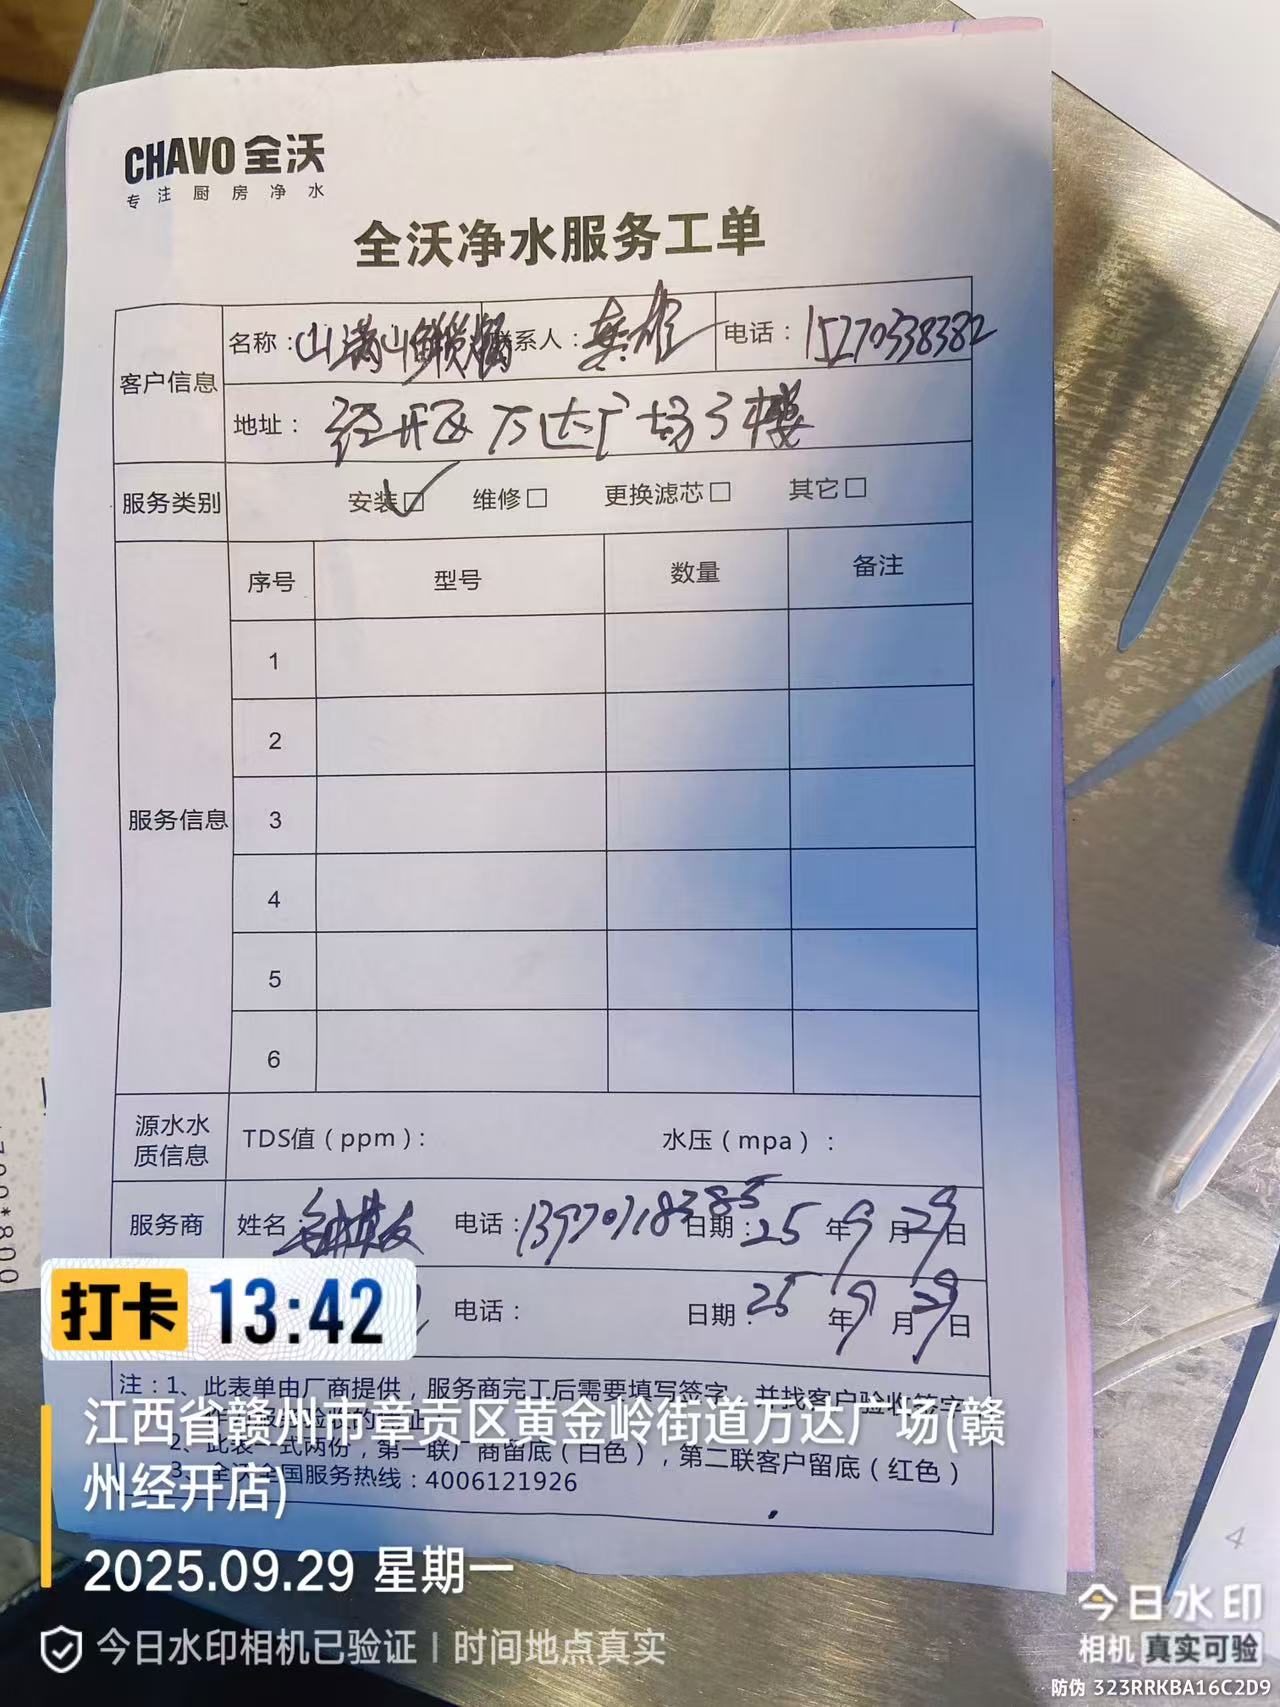 CHAVO 全沃
专注厨房净水
全沃净水服务工单
客户信息
名称：山满山 联系人： 电话：15270538382
地址：经开区万达广场3楼
服务类别 安装☑ 维修□ 更换滤芯□ 其它□
服务信息
序号 型号 数量 备注
1
2
3
4
5
6
源水水质信息 TDS值（ppm）： 水压（mpa）：
服务商 姓名： 电话：13970718385 日期：25年9月29日
电话： 日期：25年9月29日
注：1、此表单由厂商提供，服务商完工后需要填写签字，并找客户验收签字
2、此表一式两份，第一联厂商留底（白色），第二联客户留底（红色）
3、全沃全国服务热线：4006121926
打卡 13:42
江西省赣州市章贡区黄金岭街道万达广场(赣
州经开店)
2025.09.29 星期一
今日水印相机已验证 | 时间地点真实
今日水印
相机 真实可验
防伪 323RRKBA16C2D9
4